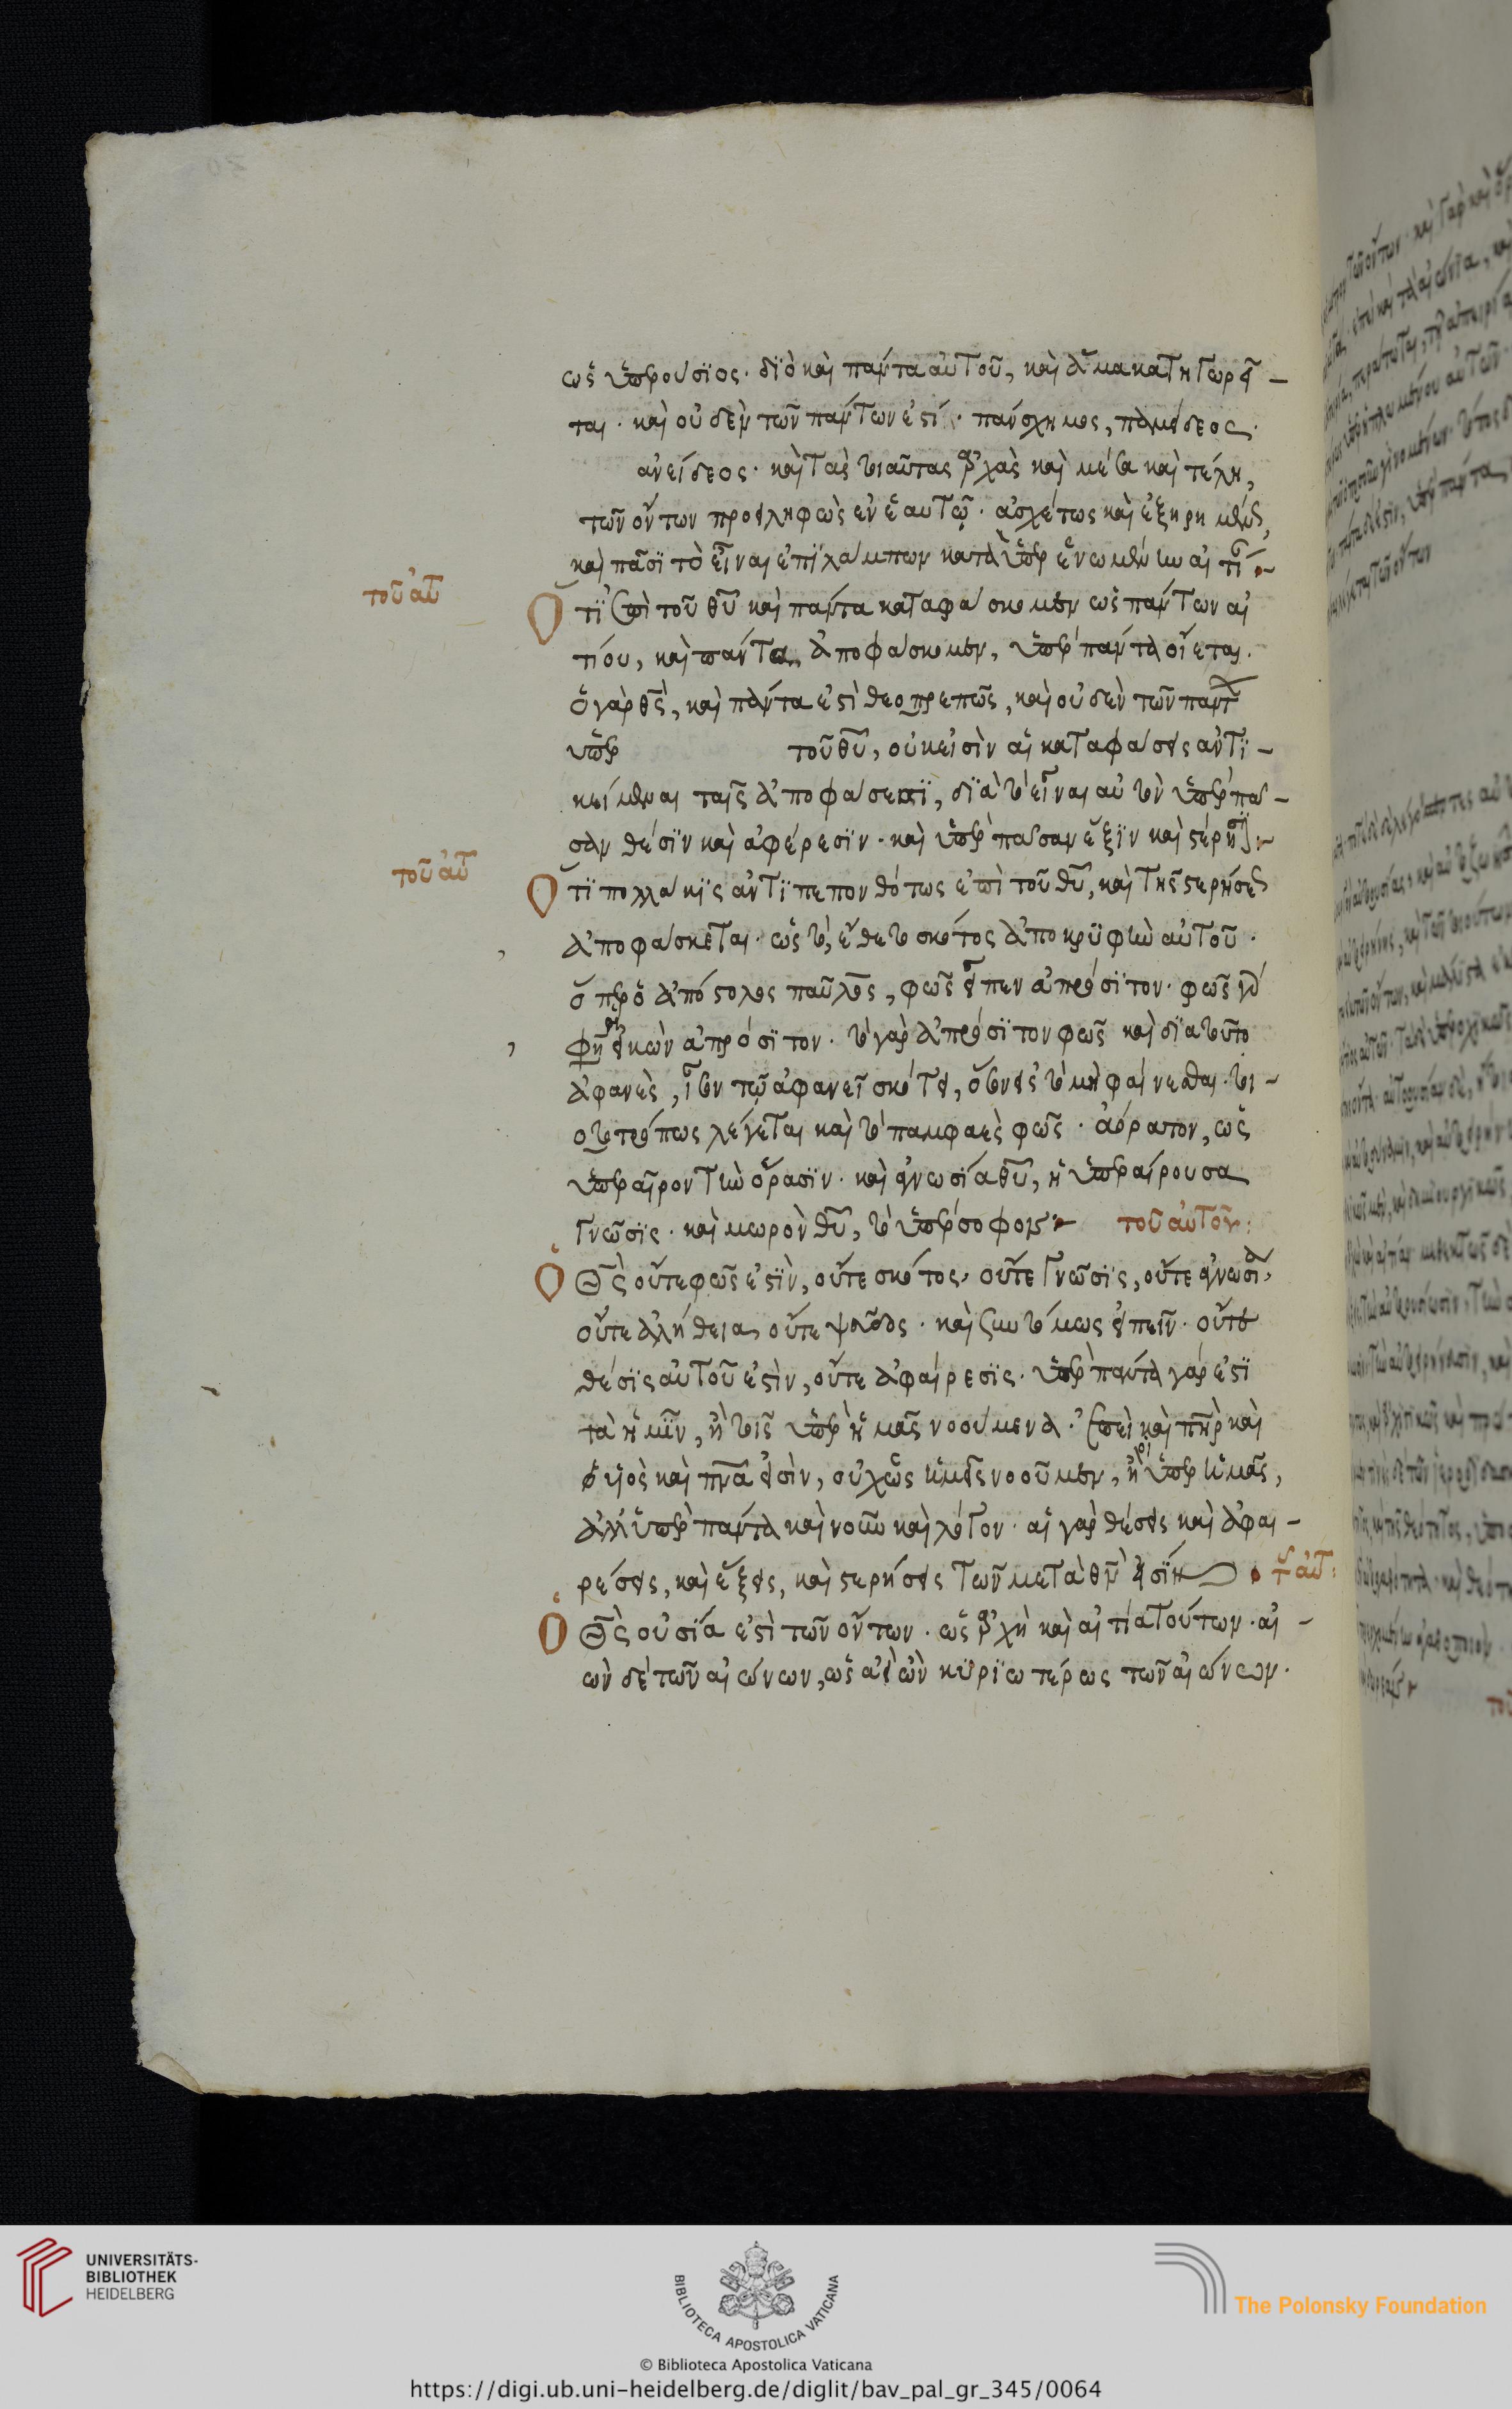 ὡς ὑπερούσιος· διὸ καὶ πάντα αὐτοῦ, καὶ ἅμα κατηγορεῖ-
ται· καὶ οὐδὲν τῶν πάντων ἐστί· πάνσχημος, πανείδεος·
ἀνείδεος· καὶ τὰς τοιαύτας ἀρχὰς καὶ μέσα καὶ τέλη,
τῶν ὄντων προειληφὼς ἐν ἑαυτῷ· ἀσχέτως καὶ ἐξηρημένως,
καὶ πᾶσι τὸ εἶναι ἐπιλάμπων κατὰ ὑπὲρ ἡνωμένην αἰτίαν
τοῦ αὐτ
Ὅτι ἐπὶ τοῦ θυ καὶ πάντα καταφάσκομεν ὡς πάντων αἰ
τίου, καὶ πάντα ἀποφάσκομεν, ὑπὲρ πάντα οἴεται.
ὁ γὰρ θς, καὶ πάντα ἐστὶ θεοπρεπῶς, καὶ οὐδὲν τῶν πάντ
ὑπὲρ τοῦ θυ, οὐκ εἰσὶν αἱ καταφάσεις ἀντι-
κείμεναι ταῖς ἀποφάσεσι, διὰ τὸ εἶναι αὐτὸν ὑπὲρ πᾶ-
σαν θέσιν καὶ ἀφέρεσιν· καὶ ὑπὲρ πᾶσαν ἕξιν καὶ στέρησιν
τοῦ αὐτ
Ὅτι πολλάκις ἀντιπεπονθότως ἐπὶ τοῦ θυ, καὶ τῆς στερήσεως
ἀποφάσκεται· ὡς τό, ἔθετο σκότος ἀποκρυφὴν αὐτοῦ·
ὅπερ ὁ ἀπόστολος παῦλος, φῶς εἶπεν ἀπρόσιτον· φῶς γὰρ
φησὶν οἰκῶν ἀπρόσιτον· τὸ γὰρ ἀπρόσιτον φῶς καὶ διὰ τοῦτο
ἀφανὲς, ἶσον τῷ ἀφανεῖ σκότει, ὅσον εἰς τὸ μὴ φαίνεσθαι· τοι-
ουτοτρόπως λέγεται καὶ τὸ παμφαὲς φῶς· ἀόρατον, ὡς
ὑπεραῖρον τὴν ὅρασιν· καὶ ἀγνωσία θυ, ἡ ὑπεραίρουσα
γνῶσις· καὶ μωρὸν θυ, τὸ ὑπέρσοφον τοῦ αὐτοῦ:
Ὁ Θς οὔτε φῶς ἐστὶν, οὔτε σκότος, οὔτε γνῶσις, οὔτε ἀγνωσία,
οὔτε ἀλήθεια, οὔτε ψεῦδος· καὶ συντόμως εἰπεῖν· οὔτε
θέσις αὐτοῦ ἐστὶν, οὔτε ἀφαίρεσις· ὑπὲρ πάντα γάρ ἐστι
τὰ ἡμῖν, ἢ τοῖς ὑπὲρ ἡμᾶς νοούμενα· ἐπεὶ καὶ πηρ καὶ
ὁ υἱὸς καὶ πνα εἰσὶν, οὐχ ὡς ἡμεῖς νοοῦμεν, ἢ οἱ ὑπὲρ ἡμᾶς,
ἀλλ' ὑπὲρ πάντα καὶ νοῦν καὶ λόγον· αἱ γὰρ θέσεις καὶ ἀφαι-
ρέσεις, καὶ ἕξεις, καὶ στερήσεις τῶν μετὰ θν εἰσίν τοῦ αὐτ:
Ὁ Θς οὐσία ἐστὶ τῶν ὄντων· ὡς ἀρχὴ καὶ αἰτία τούτων· αἰ-
ὼν δὲ τῶν αἰώνων, ὡς ἀεὶ ὢν κυριωτέρως τῶν αἰώνων.
UNIVERSITÄTS-
BIBLIOTHEK
HEIDELBERG
BIBLIOTECA APOSTOLICA VATICANA
© Biblioteca Apostolica Vaticana
The Polonsky Foundation
https://digi.ub.uni-heidelberg.de/diglit/bav_pal_gr_345/0064